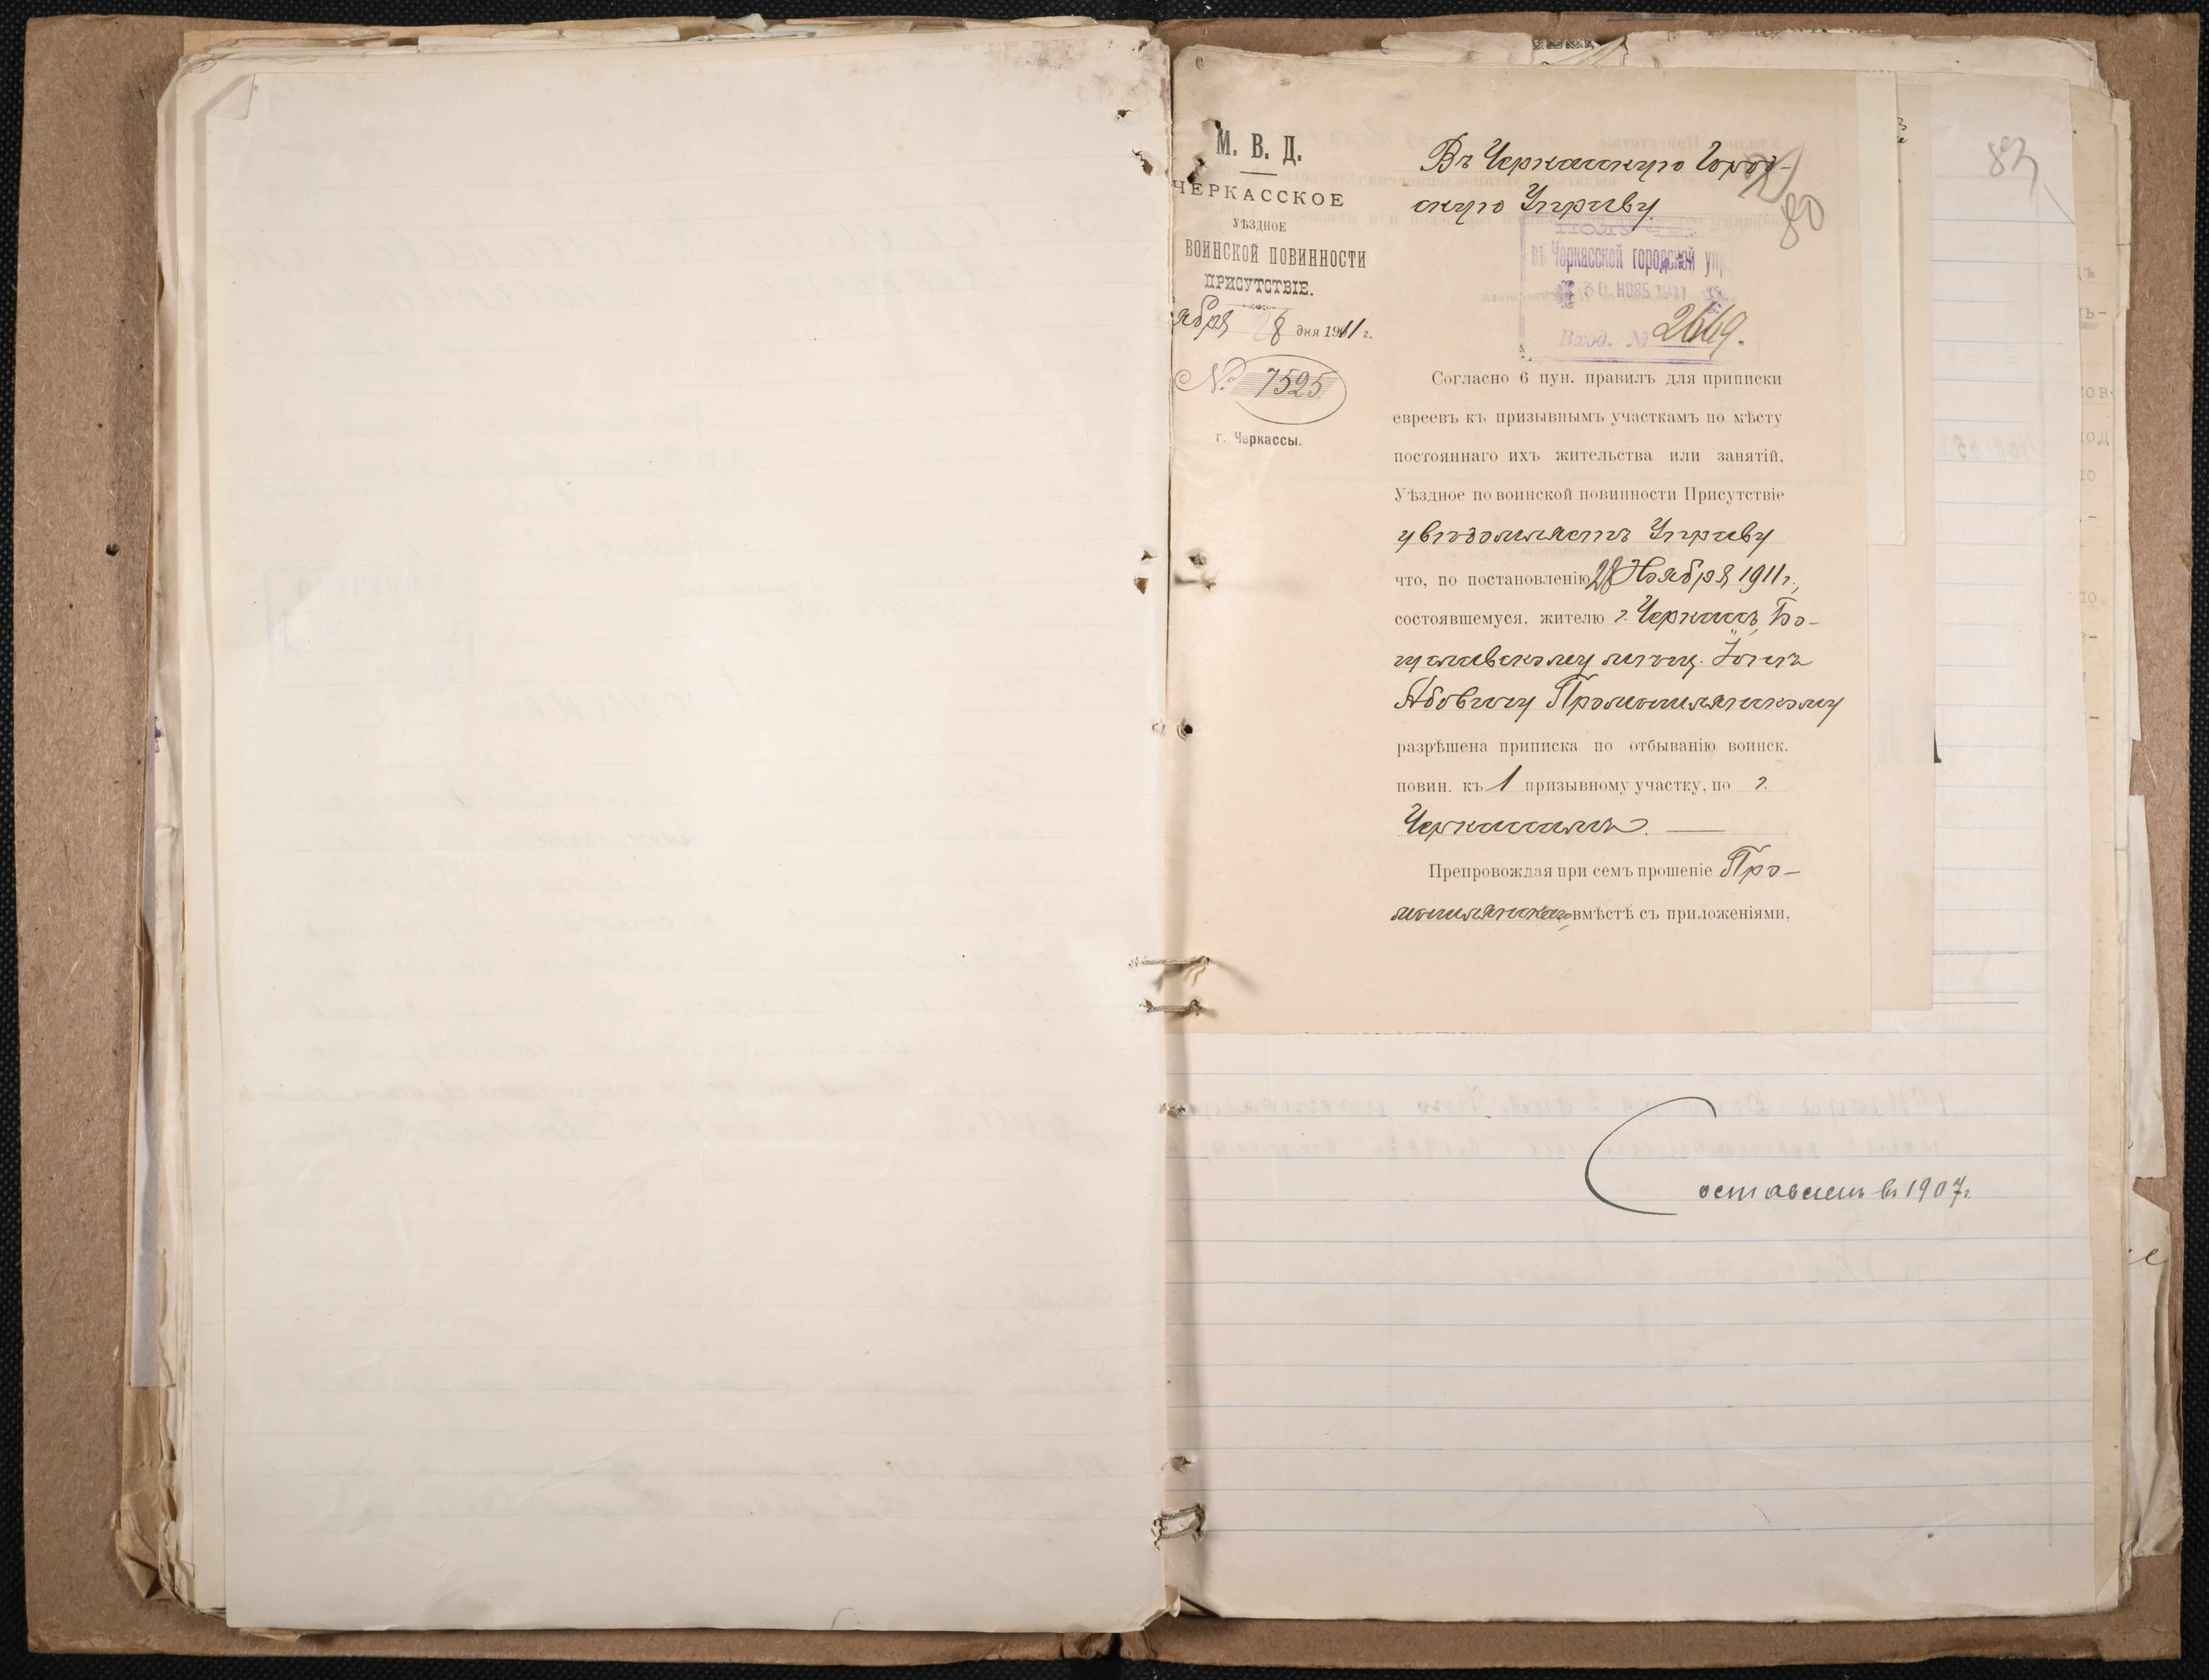 М. В. Д.
ЧЕРКАССКОЕ
УѢЗДНОЕ
ВОИНСКОЙ ПОВИННОСТИ
ПРИСУТСТВІЕ.
ября 28 дня 1911 г.
№ 7525
г. Черкассы.
Въ Черкасскую Город-
скую Управу.
80
83
ПОЛУЧЕН
въ Черкасской городской упр
30 НОЯБ 1911
Вход. № 2669.
Согласно 6 пун. правилъ для приписки
евреевъ къ призывнымъ участкамъ по мѣсту
постояннаго ихъ жительства или занятій,
Уѣздное по воинской повинности Присутствіе
увѣдомляетъ Управу
что, по постановленію 28 Ноября 1911 г.,
состоявшемуся, жителю г. Черкассъ, Бо-
гуславскому мѣщ.
Абовичу Промышлянскому
разрѣшена приписка по отбыванію воинск.
повин. къ 1 призывному участку, по г.
Черкассамъ.
Препровождая при семъ прошеніе Про-
мышлянскаго вмѣстѣ съ приложеніями,
Составленъ въ 1907 г.